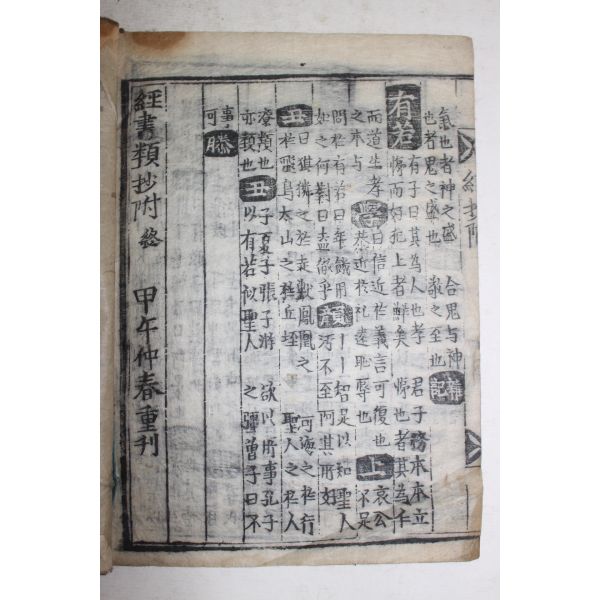 氣也者神之盛 合鬼与神
也者鬼之盛也 敎之至也
有若 有子曰其為人也孝 君子務本本立
悌而好犯上者鮮矣 悌也者其為仁
而道生孝 曰信近於義言可復也 上 哀公
之本与 恭近於礼遠恥辱也 不足
問於有若曰年饑用 丨丨智足以知聖人
如之何對曰盍徹乎 汙不至阿其所好
丑 曰猉獜之於走獸鳳凰之 河海之於行
於飛鳥太山之於丘垤 聖人之於人
潦類也 子夏子張子游 欲以所事孔子
亦類也 丑 以有若似聖人 之 彊曾子曰不
事
可 滕
經書類抄附 終 甲午仲春重刊